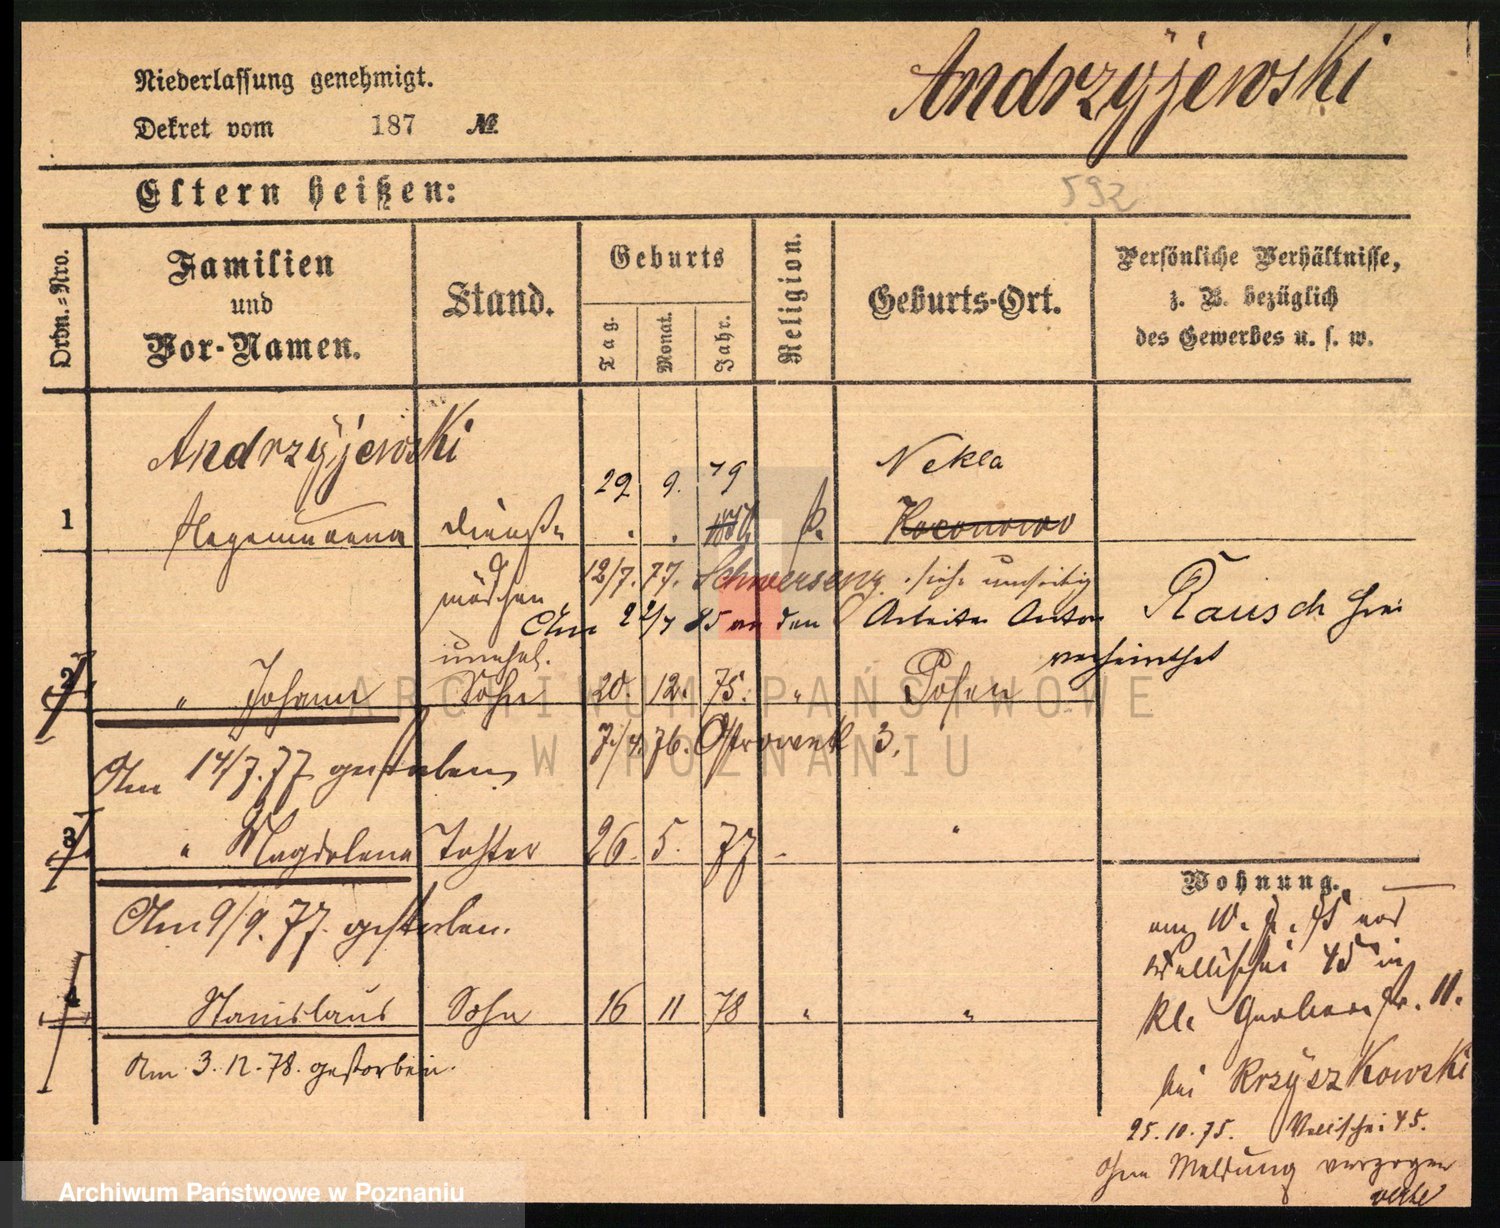 Andrzÿjewski
Niederlassung genehmigt.
Dekret vom 187 №
592
Eltern heißen:
Ordn.=Nro.
Familien
und
Vor-Namen.
Stand.
Geburts
Tag.
Monat.
Jahr.
Religion.
Geburts-Ort.
Persönliche Verhältnisse,
z. B. bezüglich
des Gewerbes u. s. w.
Andrzÿjewski
29 9. 49 Nekla
1 Dienst
mädchen
12/7. 77. Schwersenz. siehe umseitig
Am 22/7 85 an den Arbeiter Anton Rausch hier
verheirathet
unehel.
2 " Johann Sohn 20. 12. 75. " Posen
7/4. 76. Ostrowek 3.
Am 14/7. 77 gestorben
3 " Magdalena Tochter 26. 5. 77 - "
Am 9/9. 77. gestorben.
4 Stanislaus Sohn 16 11 78 " "
Am 3.12.78. gestorben.
Wohnung.
Wallischei 45 in
kl. Gerberstr. 11.
bei Krzÿszkowski
25.10.75. Wallischei 45.
Ohne Meldung verzogen
ARCHIWUM PAŃSTWOWE
W POZNANIU
Archiwum Państwowe w Poznaniu